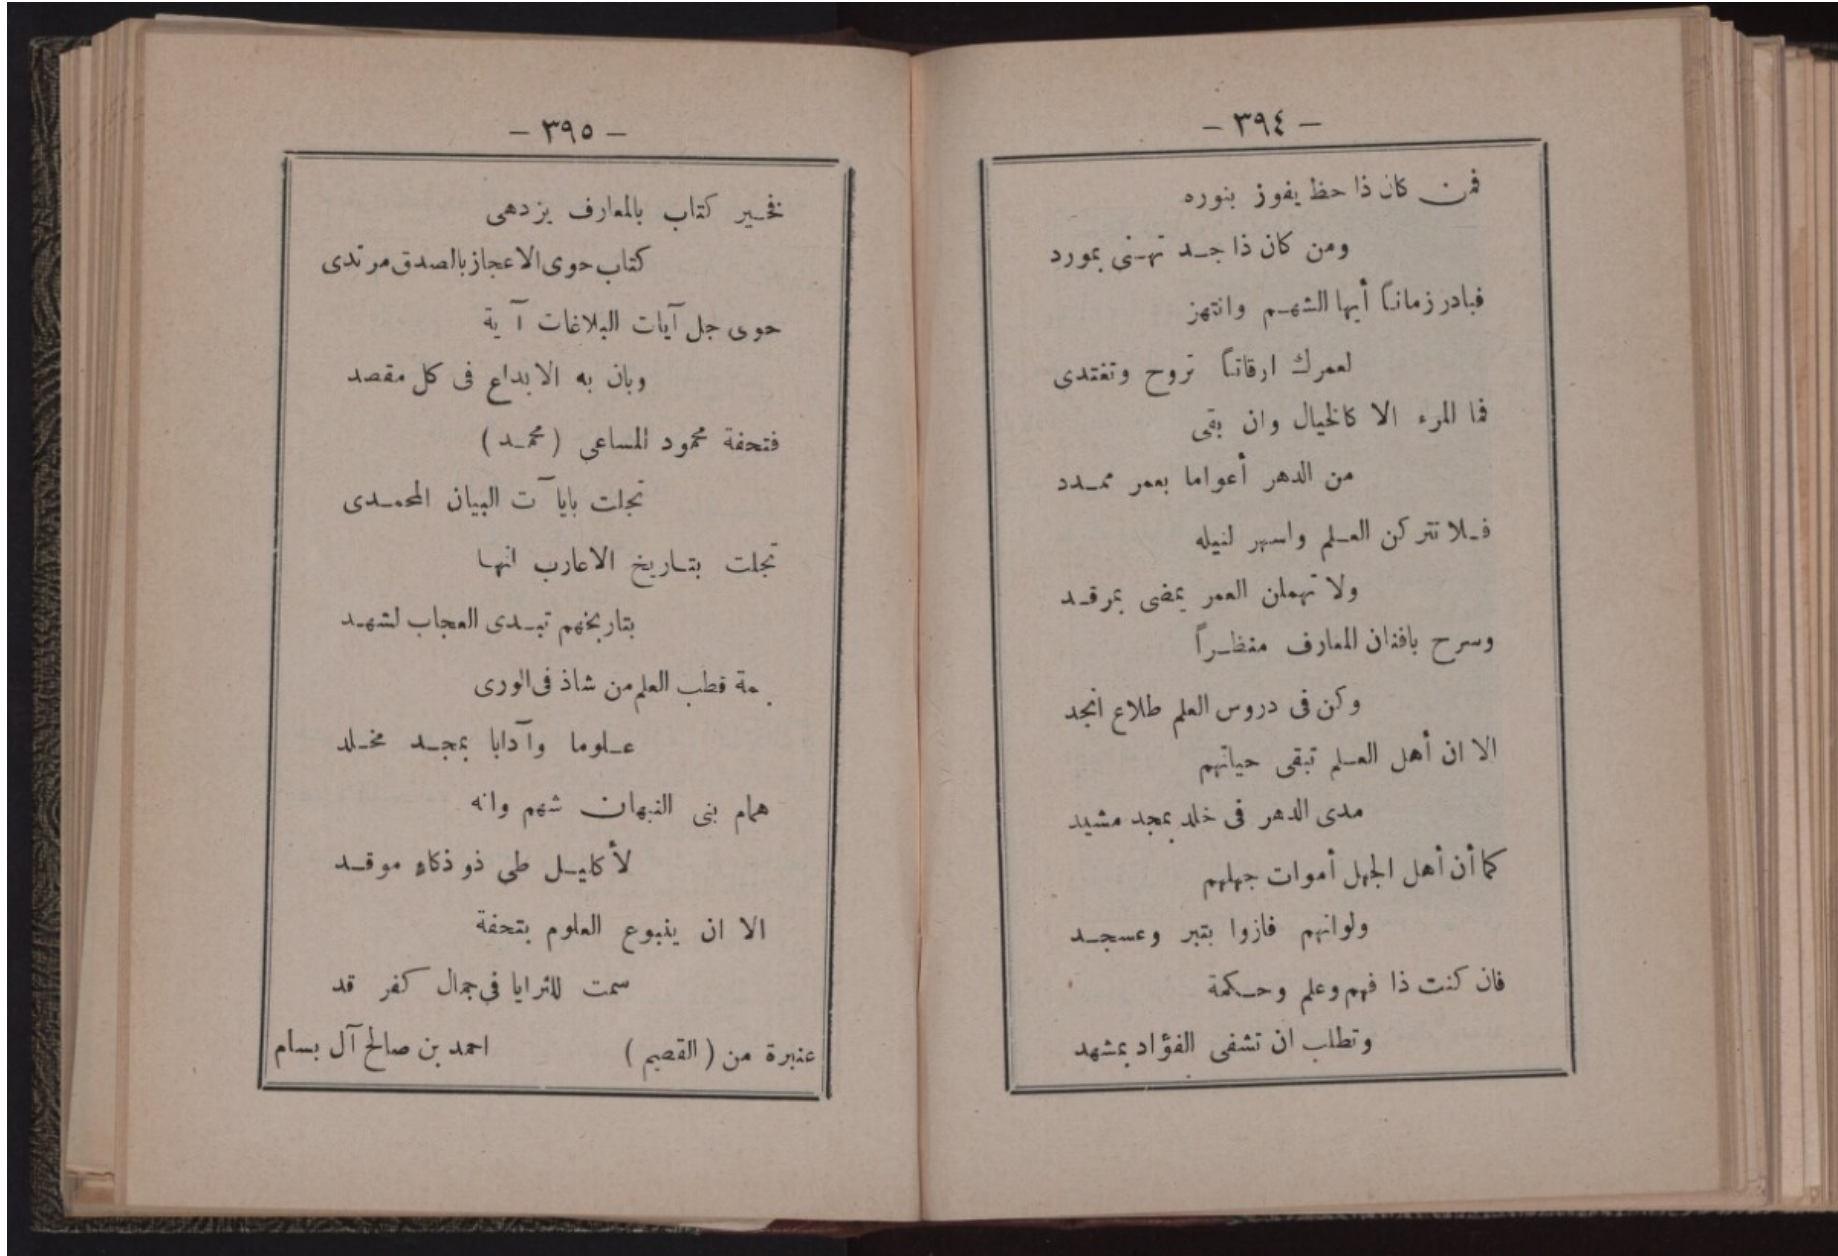 — ٣٩٤ —
فمن كان ذا حظ يفوز بنوره
ومن كان ذا جد تهنى بمورد
فبادر زمانا أيها الشهم وانتهز
لعمرك ارقاتا تروح وتغتدى
فما المرء الا كالخيال وان بقى
من الدهر أعواما بعمر ممدد
فلا تتركن العلم واسهر لنيله
ولا تهملن العمر يمضى بمرقد
وسرح بافنان المعارف منظراً
وكن فى دروس العلم طلاع انجد
الا ان أهل العلم تبقى حياتهم
مدى الدهر فى خلد بمجد مشيد
كما أن أهل الجهل أموات جهلهم
ولوانهم فازوا بتبر وعسجد
فان كنت ذا فهم وعلم وحكمة
وتطلب ان تشفى الفؤاد بمشهد
— ٣٩٥ —
فخير كتاب بالمعارف يزدهى
كتاب حوى الاعجاز بالصدق مرتدى
حوى جل آيات البلاغات آية
وبان به الابداع فى كل مقصد
فتحفة محمود المساعى (محمد)
تجلت بايآت البيان المحمدى
تجلت بتاريخ الاعارب انها
بتاريخهم تبدى العجاب لشهد
قطب العلم من شاذ فى الورى
علوما وآدابا بمجد مخلد
همام بنى النبهان شهم وانه
لأكليل طي ذو ذكاء موقد
الا ان ينبوع العلوم بتحفة
سمت للثرايا فى جمال كفر قد
عنبرة من (القصيم) احمد بن صالح آل بسام